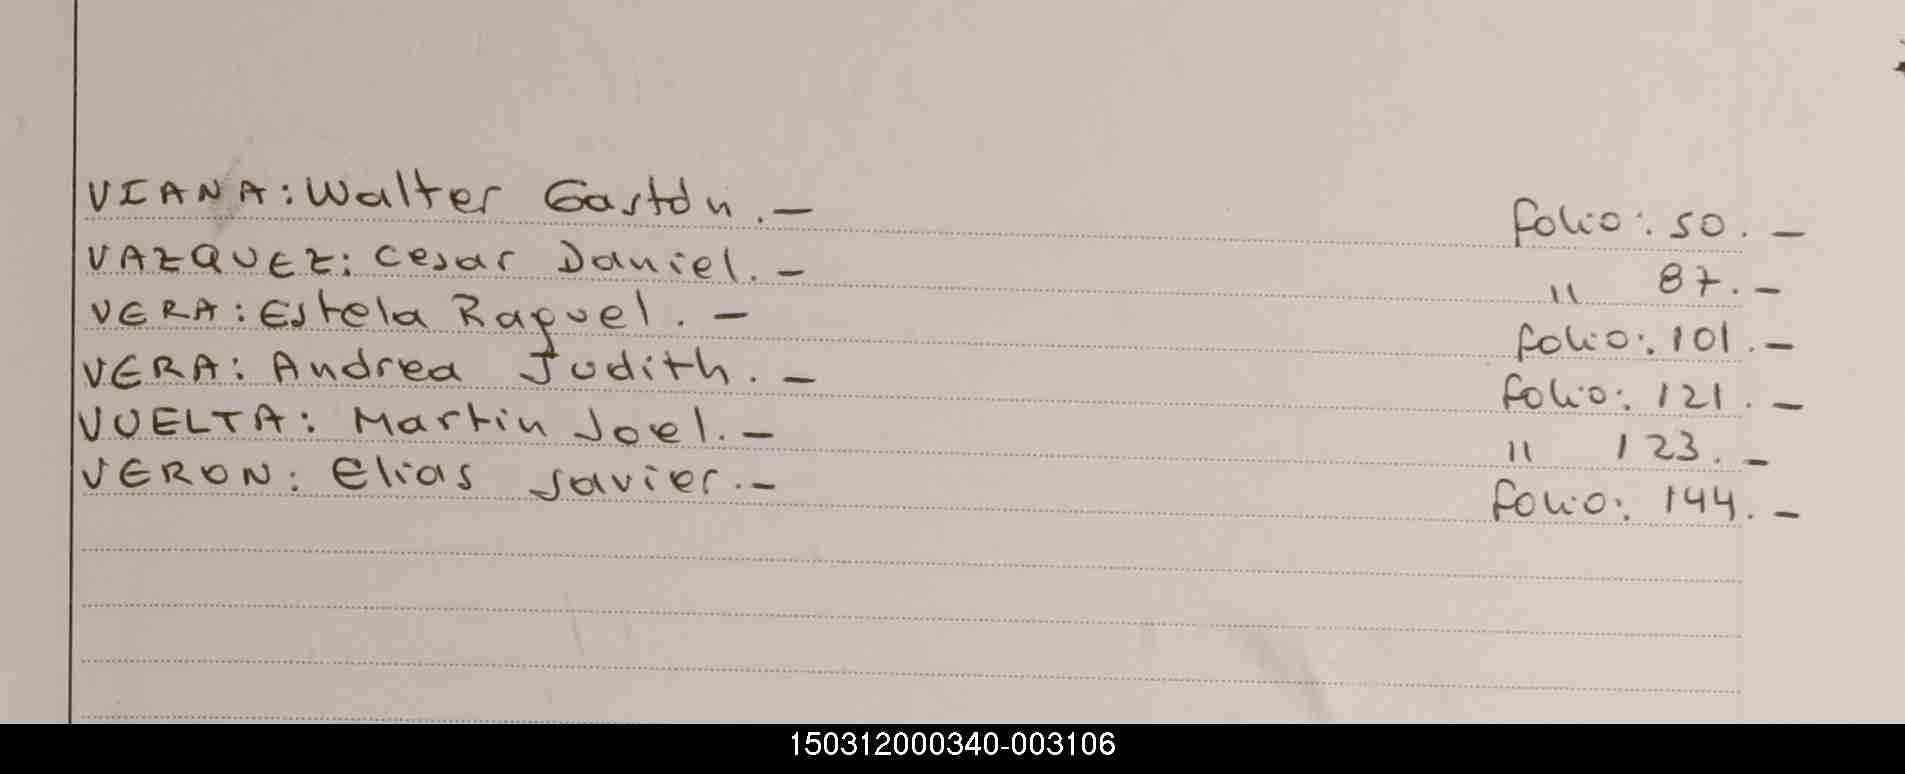 VIANA: Walter Gastón.— folio: 50.—
VAZQUEZ: Cesar Daniel.— " 87.—
VERA: Estela Raquel.— folio: 101.—
VERA: Andrea Judith.— folio: 121.—
VUELTA: Martin Joel.— " 123.—
VERON: Elias Javier.— folio: 144.—
150312000340-003106